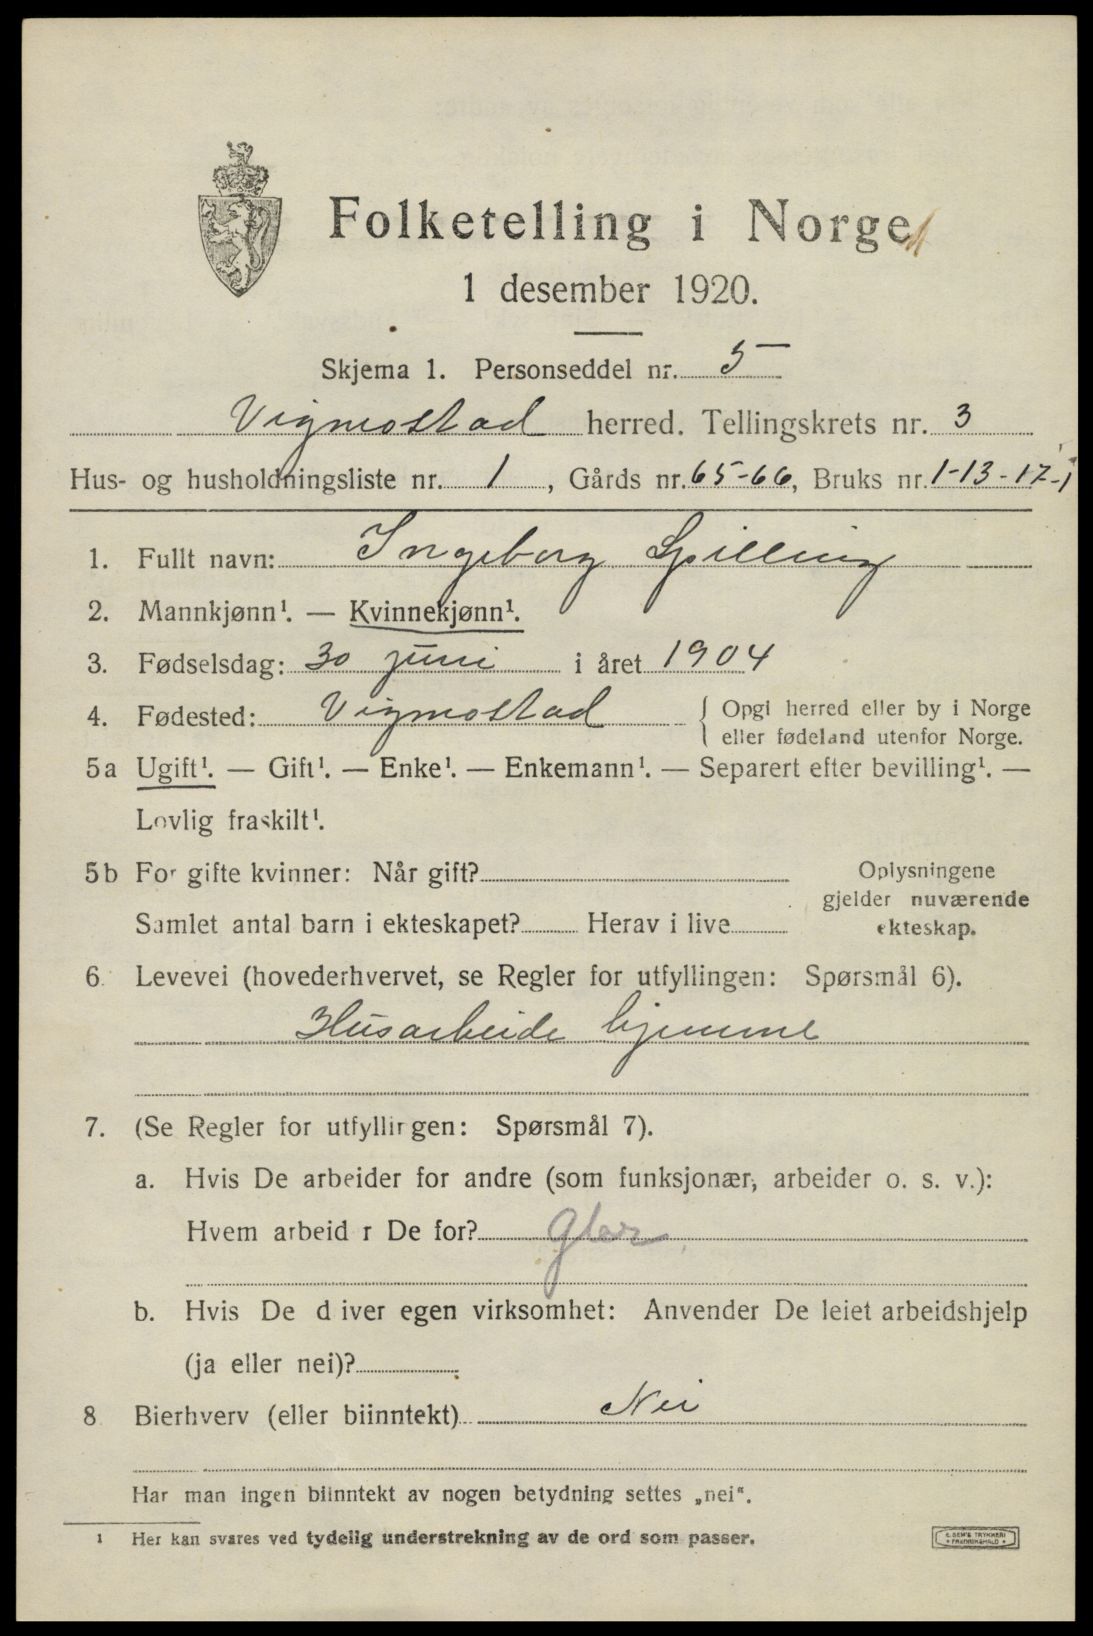 Folketelling i Norge
1 desember 1920.
Skjema 1. Personseddel nr. 5
Vigmostad herred. Tellingskrets nr. 3
Hus- og husholdningsliste nr. 1, Gårds nr. 65-66, Bruks nr. 1-13-17-1
1. Fullt navn: Ingeborg Spilling
2. Mannkjønn¹. — Kvinnekjønn¹.
3. Fødselsdag: 30 juni i året 1904
4. Fødested: Vigmostad { Opgi herred eller by i Norge
eller fødeland utenfor Norge.
5a Ugift¹. — Gift¹. — Enke¹. — Enkemann¹. — Separert efter bevilling¹. —
Lovlig fraskilt¹.
5b For gifte kvinner: Når gift?
Samlet antal barn i ekteskapet? Herav i live
Oplysningene
gjelder nuværende
ekteskap.
6. Levevei (hovederhvervet, se Regler for utfyllingen: Spørsmål 6).
Husarbeide hjemme
7. (Se Regler for utfyllingen: Spørsmål 7).
a. Hvis De arbeider for andre (som funksjonær, arbeider o. s. v.):
Hvem arbeid r De for?
b. Hvis De d iver egen virksomhet: Anvender De leiet arbeidshjelp
(ja eller nei)?
8 Bierhverv (eller biinntekt) Nei
Har man ingen biinntekt av nogen betydning settes „nei“.
1 Her kan svares ved tydelig understrekning av de ord som passer.
E. SEM'S TRYKKERI
FREDRIKSHALD